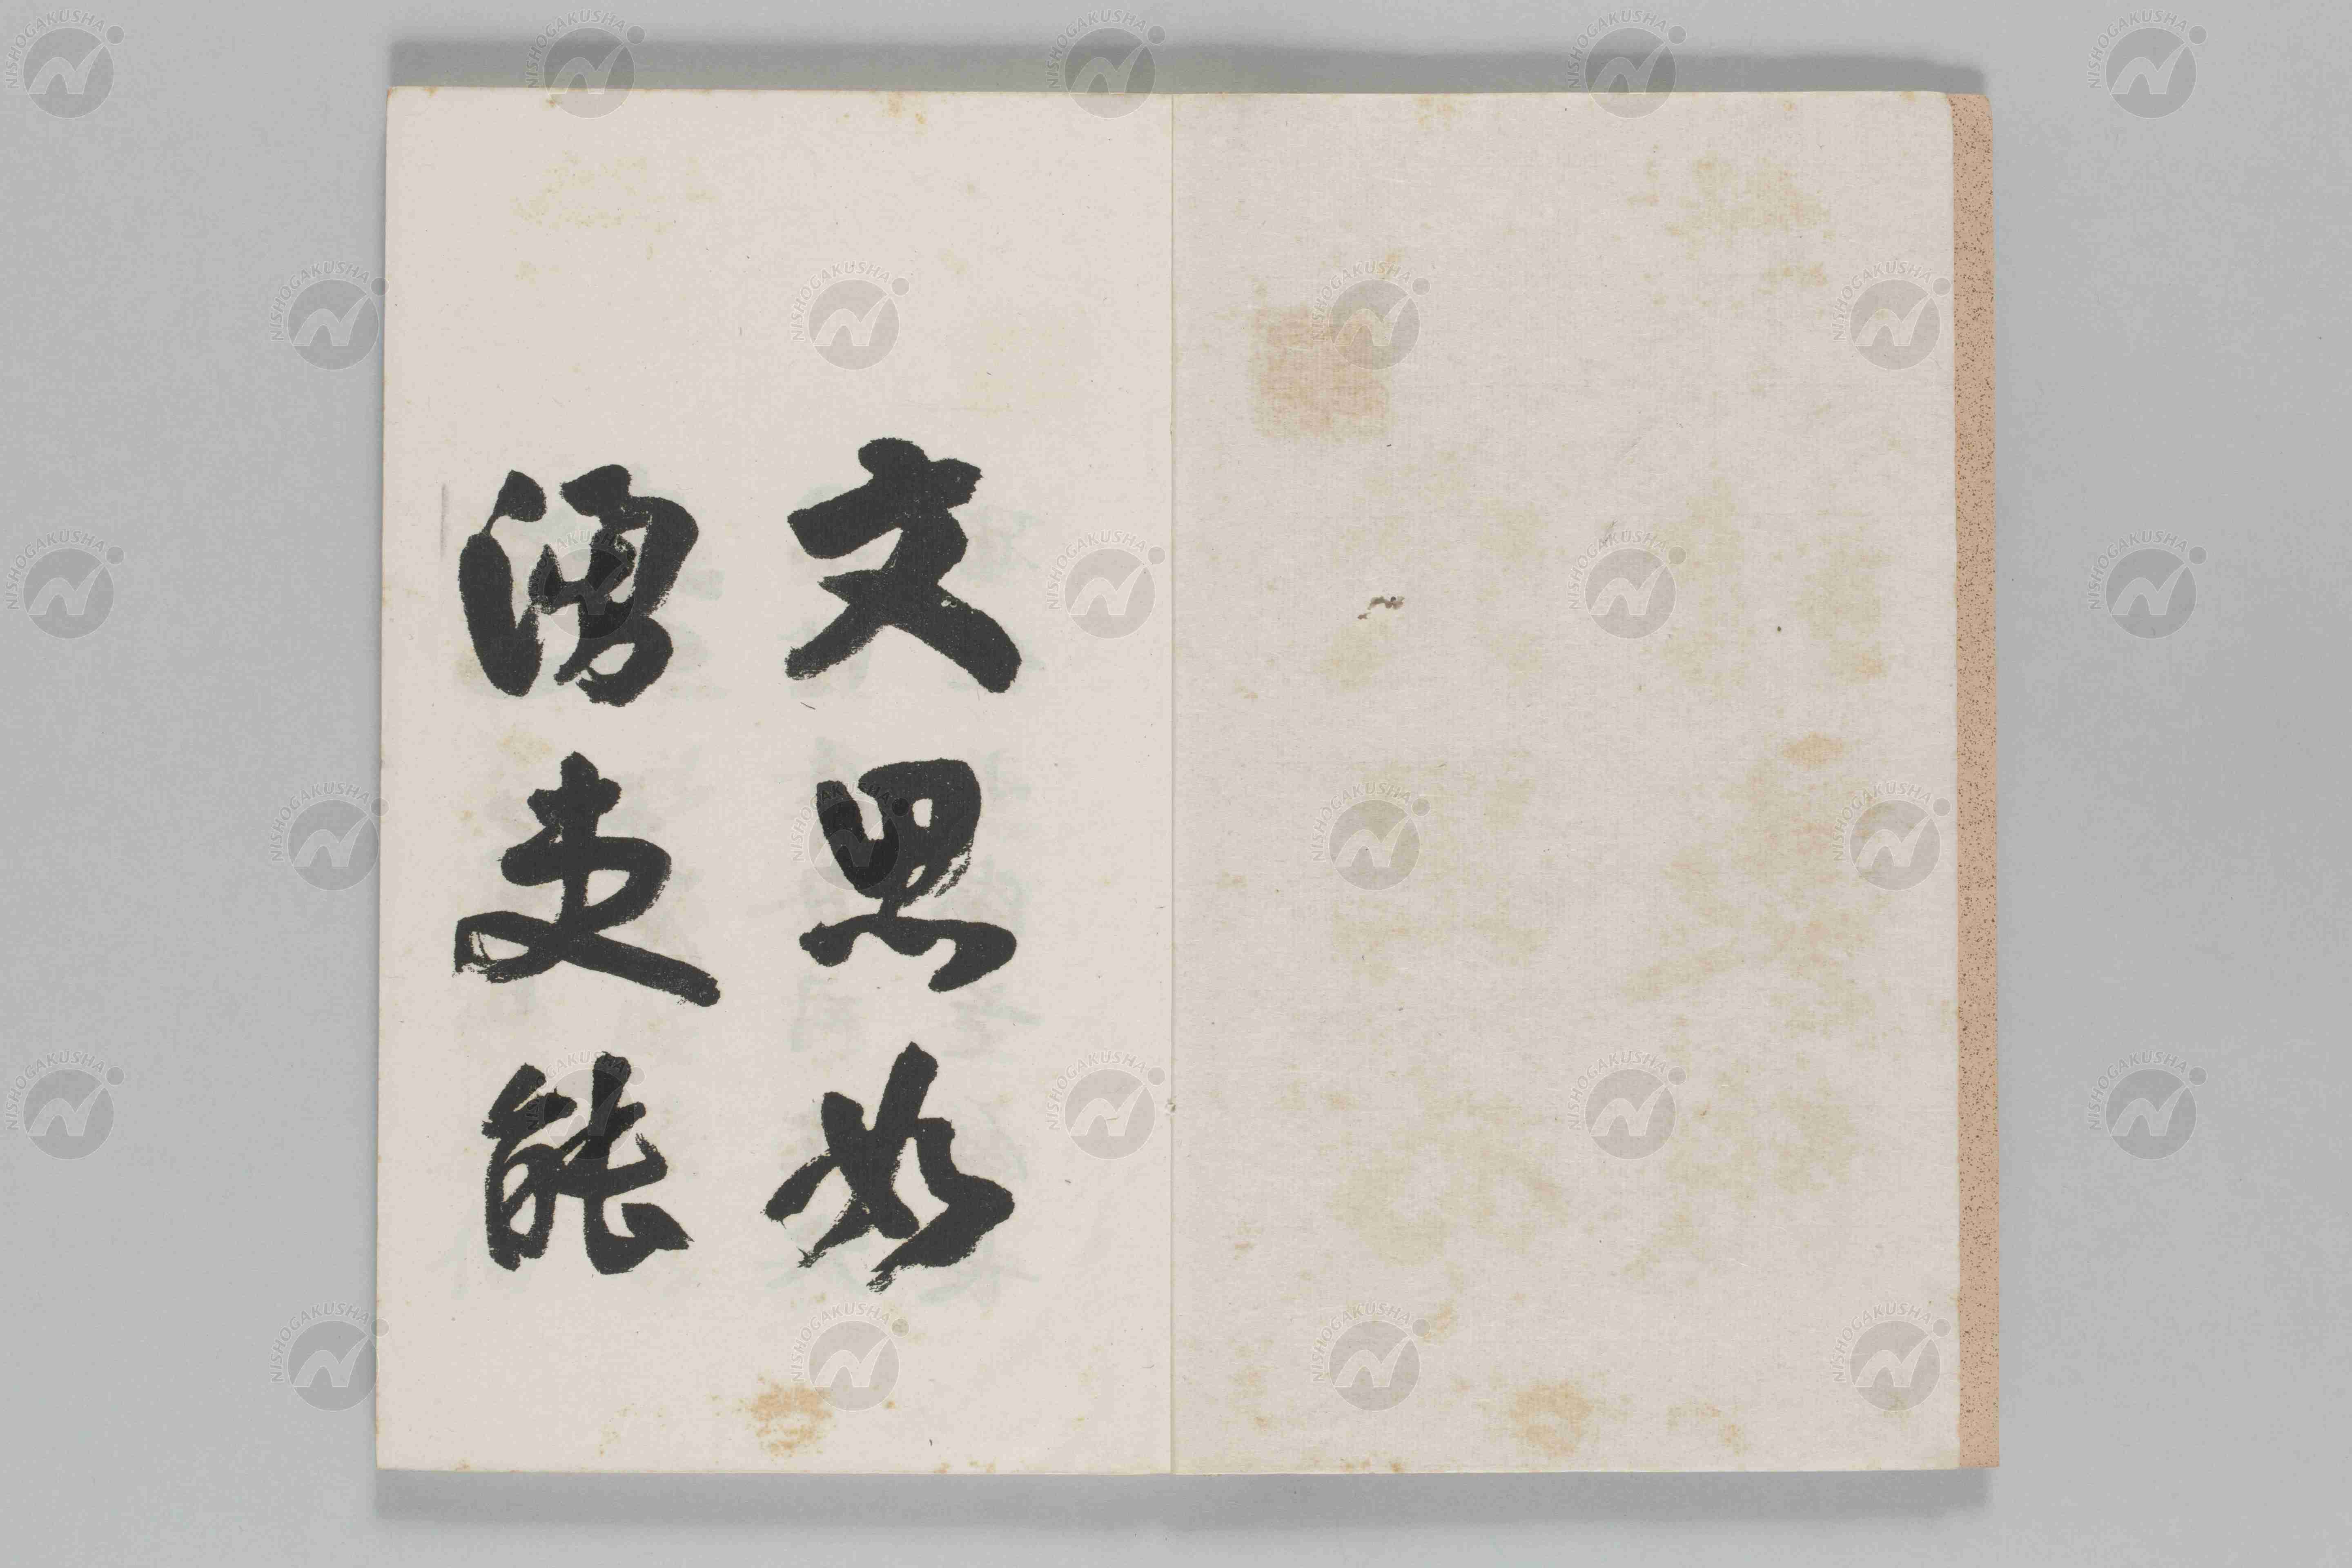 文思如
湧吏能
NISHOGAKUSHA